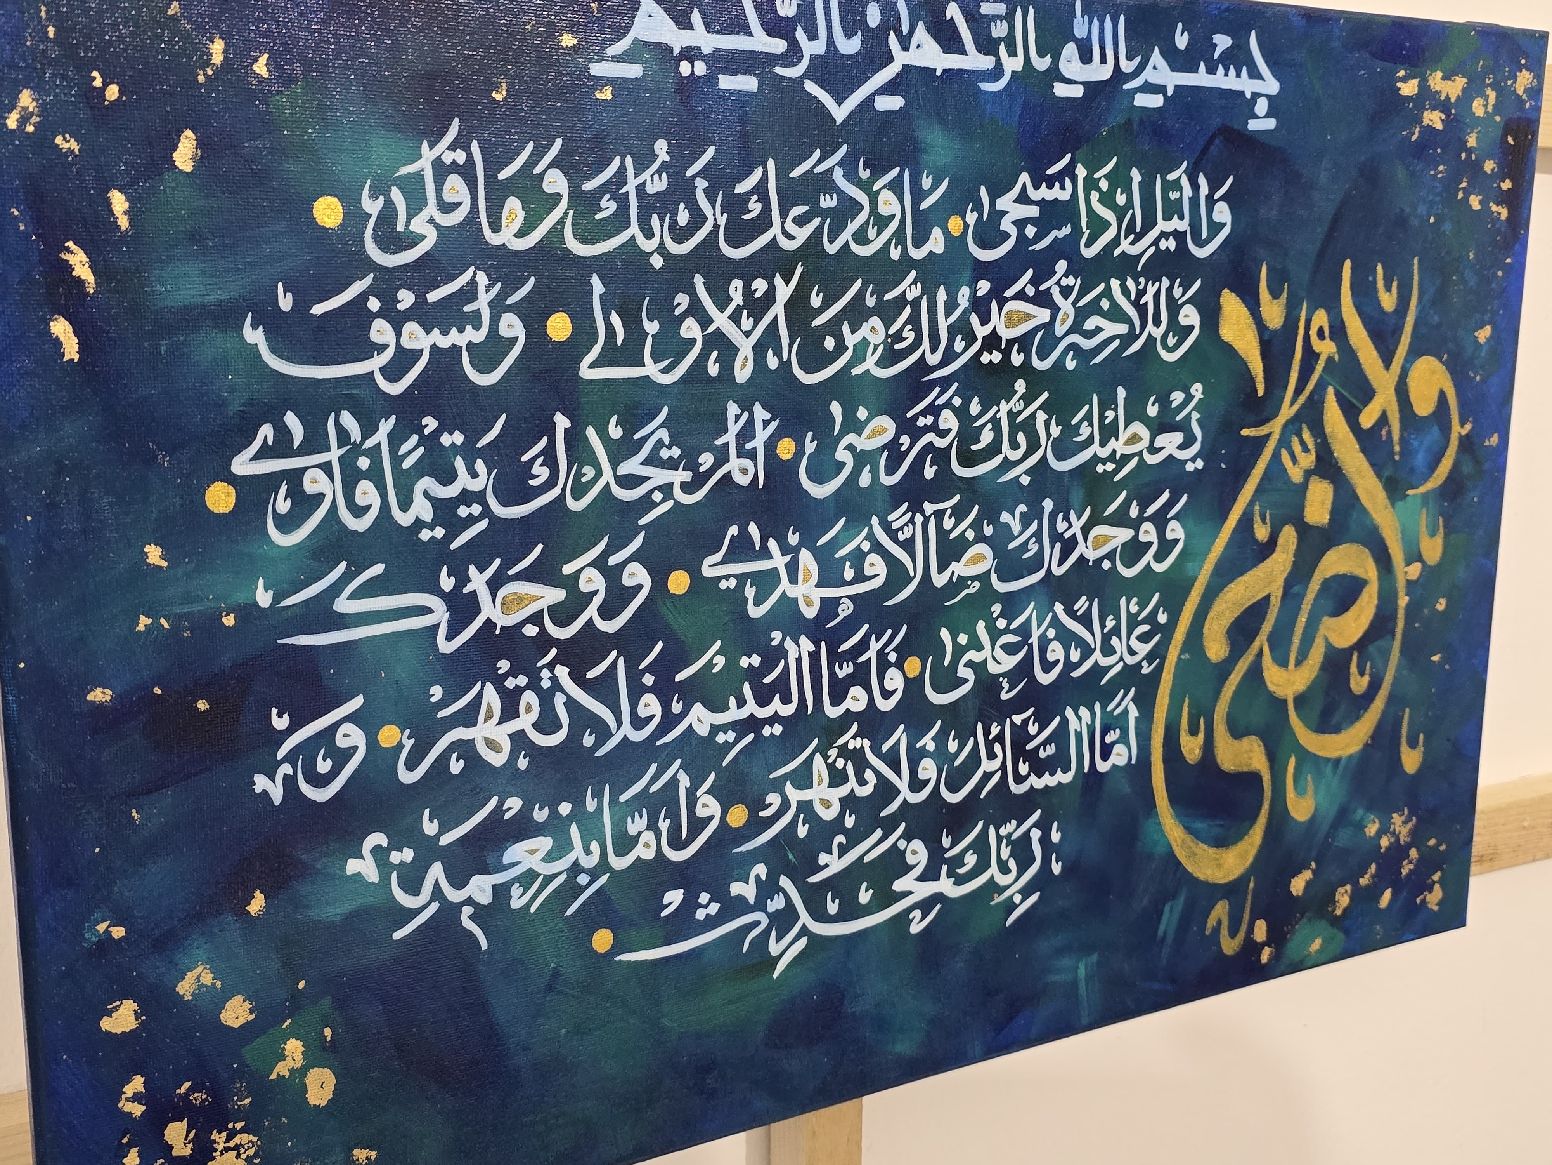 بِسْمِ اللهِ الرَّحْمٰنِ الرَّحِيمِ
وَالضُّحىٰ
وَالَّيْلِ اِذَا سَجىٰ مَا وَدَّعَكَ رَبُّكَ وَمَا قَلىٰ
وَلَلْاٰخِرَةُ خَيْرٌ لَّكَ مِنَ الْاُوْلىٰ وَلَسَوْفَ
يُعْطِيْكَ رَبُّكَ فَتَرْضىٰ اَلَمْ يَجِدْكَ يَتِيْمًا فَاٰوٰى
وَوَجَدَكَ ضَآلًّا فَهَدٰى وَوَجَدَكَ
عَائِلًا فَاَغْنىٰ فَاَمَّا الْيَتِيْمَ فَلَا تَقْهَرْ وَ
اَمَّا السَّآئِلَ فَلَا تَنْهَرْ وَاَمَّا بِنِعْمَةِ
رَبِّكَ فَحَدِّثْ